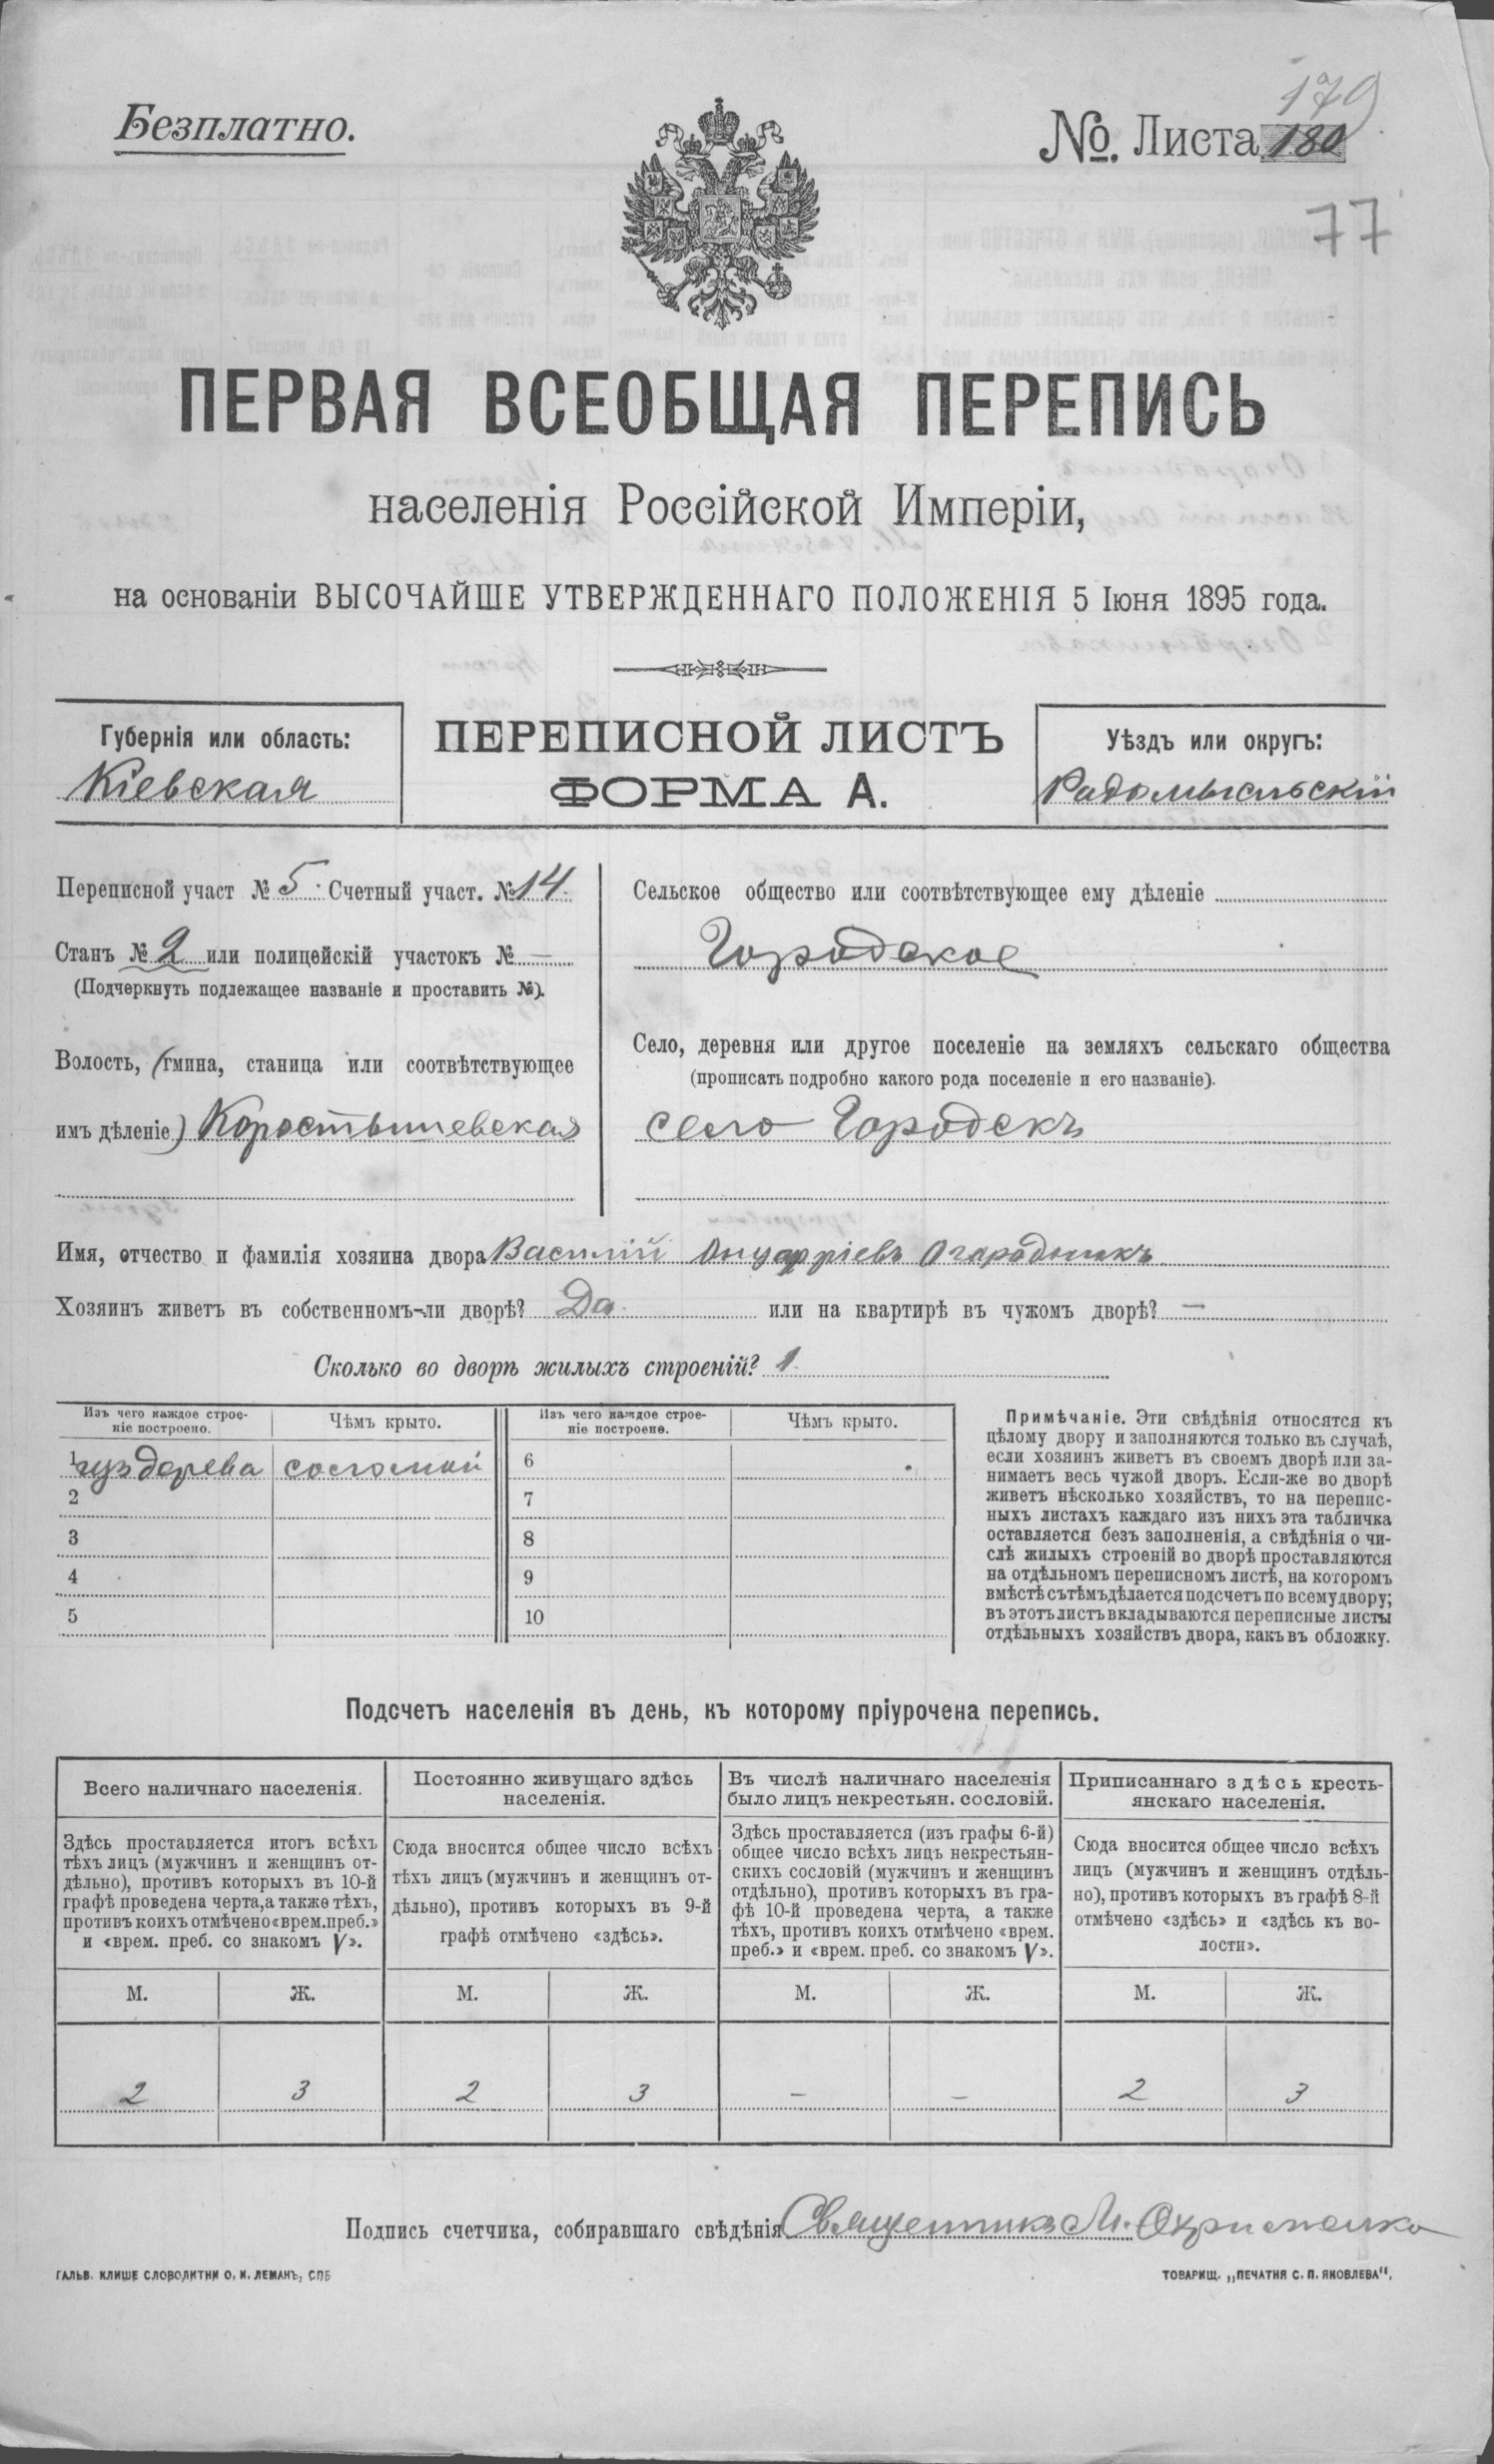 Безплатно.
№ Листа 180
179
77
ПЕРВАЯ ВСЕОБЩАЯ ПЕРЕПИСЬ
населенія Россійской Имперіи,
на основаніи ВЫСОЧАЙШЕ УТВЕРЖДЕННАГО ПОЛОЖЕНІЯ 5 Іюня 1895 года.
Губернія или область:
Кіевская
ПЕРЕПИСНОЙ ЛИСТЪ
ФОРМА А.
Уѣздъ или округъ:
Радомысльскій
Переписной участ № 5. Счетный участ. № 14.
Станъ № 2 или полицейскій участокъ № —
(Подчеркнуть подлежащее названіе и проставить №).
Волость, (гмина, станица или соотвѣтствующее
имъ дѣленіе) Коростышевская
Сельское общество или соотвѣтствующее ему дѣленіе
Городское
Село, деревня или другое поселеніе на земляхъ сельскаго общества
(прописать подробно какого рода поселеніе и его названіе).
село Городскъ
Имя, отчество и фамилія хозяина двора Василій Онуфріевъ Огородникъ
Хозяинъ живетъ въ собственномъ-ли дворѣ? Да. или на квартирѣ въ чужомъ дворѣ? —
Сколько во дворѣ жилыхъ строеній? 1.
Изъ чего каждое строе-
ніе построено.
Чѣмъ крыто.
Изъ чего каждое строе-
ніе построено.
Чѣмъ крыто.
1 изъ дерева соломой
2
3
4
5
6
7
8
9
10
Примѣчаніе. Эти свѣдѣнія относятся къ
цѣлому двору и заполняются только въ случаѣ,
если хозяинъ живетъ въ своемъ дворѣ или за-
нимаетъ весь чужой дворъ. Если-же во дворѣ
живетъ нѣсколько хозяйствъ, то на перепис-
ныхъ листахъ каждаго изъ нихъ эта табличка
оставляется безъ заполненія, а свѣдѣнія о чи-
слѣ жилыхъ строеній во дворѣ проставляются
на отдѣльномъ переписномъ листѣ, на которомъ
вмѣстѣ съ тѣмъ дѣлается подсчетъ по всему двору;
въ этотъ листъ вкладываются переписные листы
отдѣльныхъ хозяйствъ двора, какъ въ обложку.
Подсчетъ населенія въ день, къ которому пріурочена перепись.
Всего наличнаго населенія.
Здѣсь проставляется итогъ всѣхъ
тѣхъ лицъ (мужчинъ и женщинъ от-
дѣльно), противъ которыхъ въ 10-й
графѣ проведена черта, а также тѣхъ,
противъ коихъ отмѣчено «врем. преб.»
и «врем. преб. со знакомъ V».
Постоянно живущаго здѣсь
населенія.
Сюда вносится общее число всѣхъ
тѣхъ лицъ (мужчинъ и женщинъ от-
дѣльно), противъ которыхъ въ 9-й
графѣ отмѣчено «здѣсь».
Въ числѣ наличнаго населенія
было лицъ некрестьян. сословій.
Здѣсь проставляется (изъ графы 6-й)
общее число всѣхъ лицъ некрестьян-
скихъ сословій (мужчинъ и женщинъ
отдѣльно), противъ которыхъ въ гра-
фѣ 10-й проведена черта, а также
тѣхъ, противъ коихъ отмѣчено «врем.
преб.» и «врем. преб. со знакомъ V».
Приписаннаго здѣсь кресть-
янскаго населенія.
Сюда вносится общее число всѣхъ
лицъ (мужчинъ и женщинъ отдѣль-
но), противъ которыхъ въ графѣ 8-й
отмѣчено «здѣсь» и «здѣсь къ во-
лости».
М. Ж. М. Ж. М. Ж. М. Ж.
2 3 2 3 — — 2 3
Подпись счетчика, собиравшаго свѣдѣнія Священникъ М. Охрименко
ГАЛЬВ. КЛИШЕ СЛОВОЛИТНИ О. И. ЛЕМАНЪ, СПБ
ТОВАРИЩ. „ПЕЧАТНЯ С. П. ЯКОВЛЕВА".